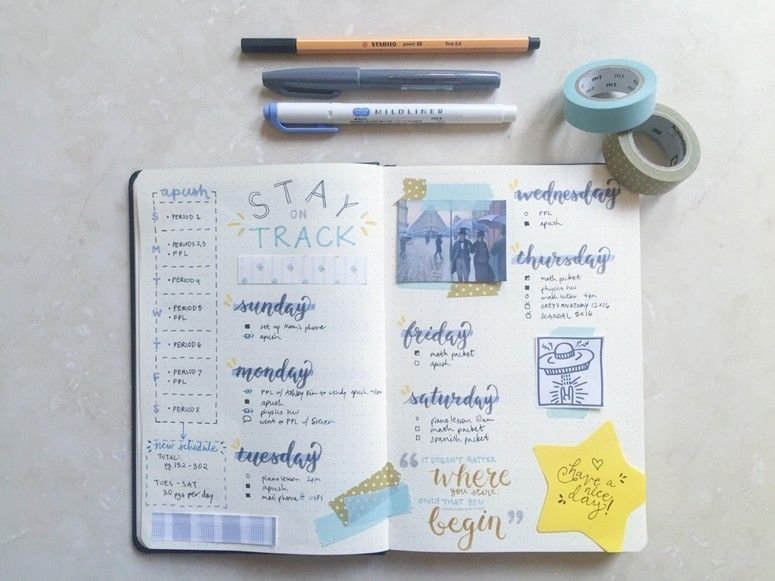 STABILO point 88 fine 0,4
MILDLINER
mt
mt
apush
S • PERIOD 1
M • PERIODS 2,3
• FPL
T • PERIOD 4
W • PERIOD 5
• FPL
T • PERIOD 6
F • PERIOD 7
• FPL
S • PERIOD 8
new schedule
TOTAL:
pg 152-302
TUES - SAT
30 pgs per day
STAY
ON
TRACK
sunday
set up Mom's phone
apush
monday
FPL w/ Ashley Kim to study apush
apush
physics hw
went to FPL w/ Steven
tuesday
piano lesson 2pm
apush
mail phone @ USPS
wednesday
FPL
apush
thursday
math packet
physics hw
math tutor 4pm
GREYS ANATOMY 12X16
SCANDAL 5X16
friday
math packet
apush
saturday
piano lesson 10am
math packet
spanish packet
“IT DOESN'T MATTER
where
you start
ONLY THAT YOU
begin”
have a
nice
day!